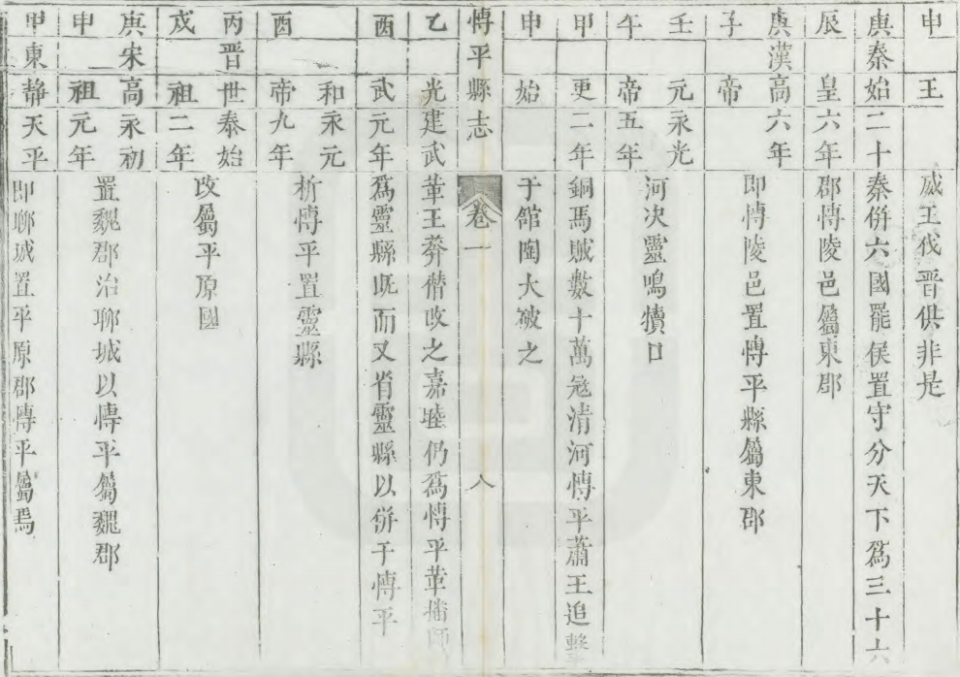 申 王 威王伐晋俱非是
庚秦始二十 秦併六國罷侯置守分天下爲三十六
辰 皇六年 郡博陵邑屬東郡
庚漢高六年 即博陵邑置博平縣屬東郡
子 帝
壬 元永光 河决靈鳴犢口
午 帝五年
甲 更二年 銅馬賊數十萬冦清河博平蕭王追擊
申 始 于館陶大破之
博平縣志 卷一 八
乙 光建武 革王莽僭改之嘉睦仍爲博平革
酉 武元年 爲靈縣既而又省靈縣以併于博平
和永元 析博平置靈縣
酉 帝九年
丙晋世泰始 改屬平原國
戌 祖二年
庚宋高永初 置魏郡治聊城以博平屬魏郡
申 祖元年
甲東静天平 即聊城置平原郡博平屬焉